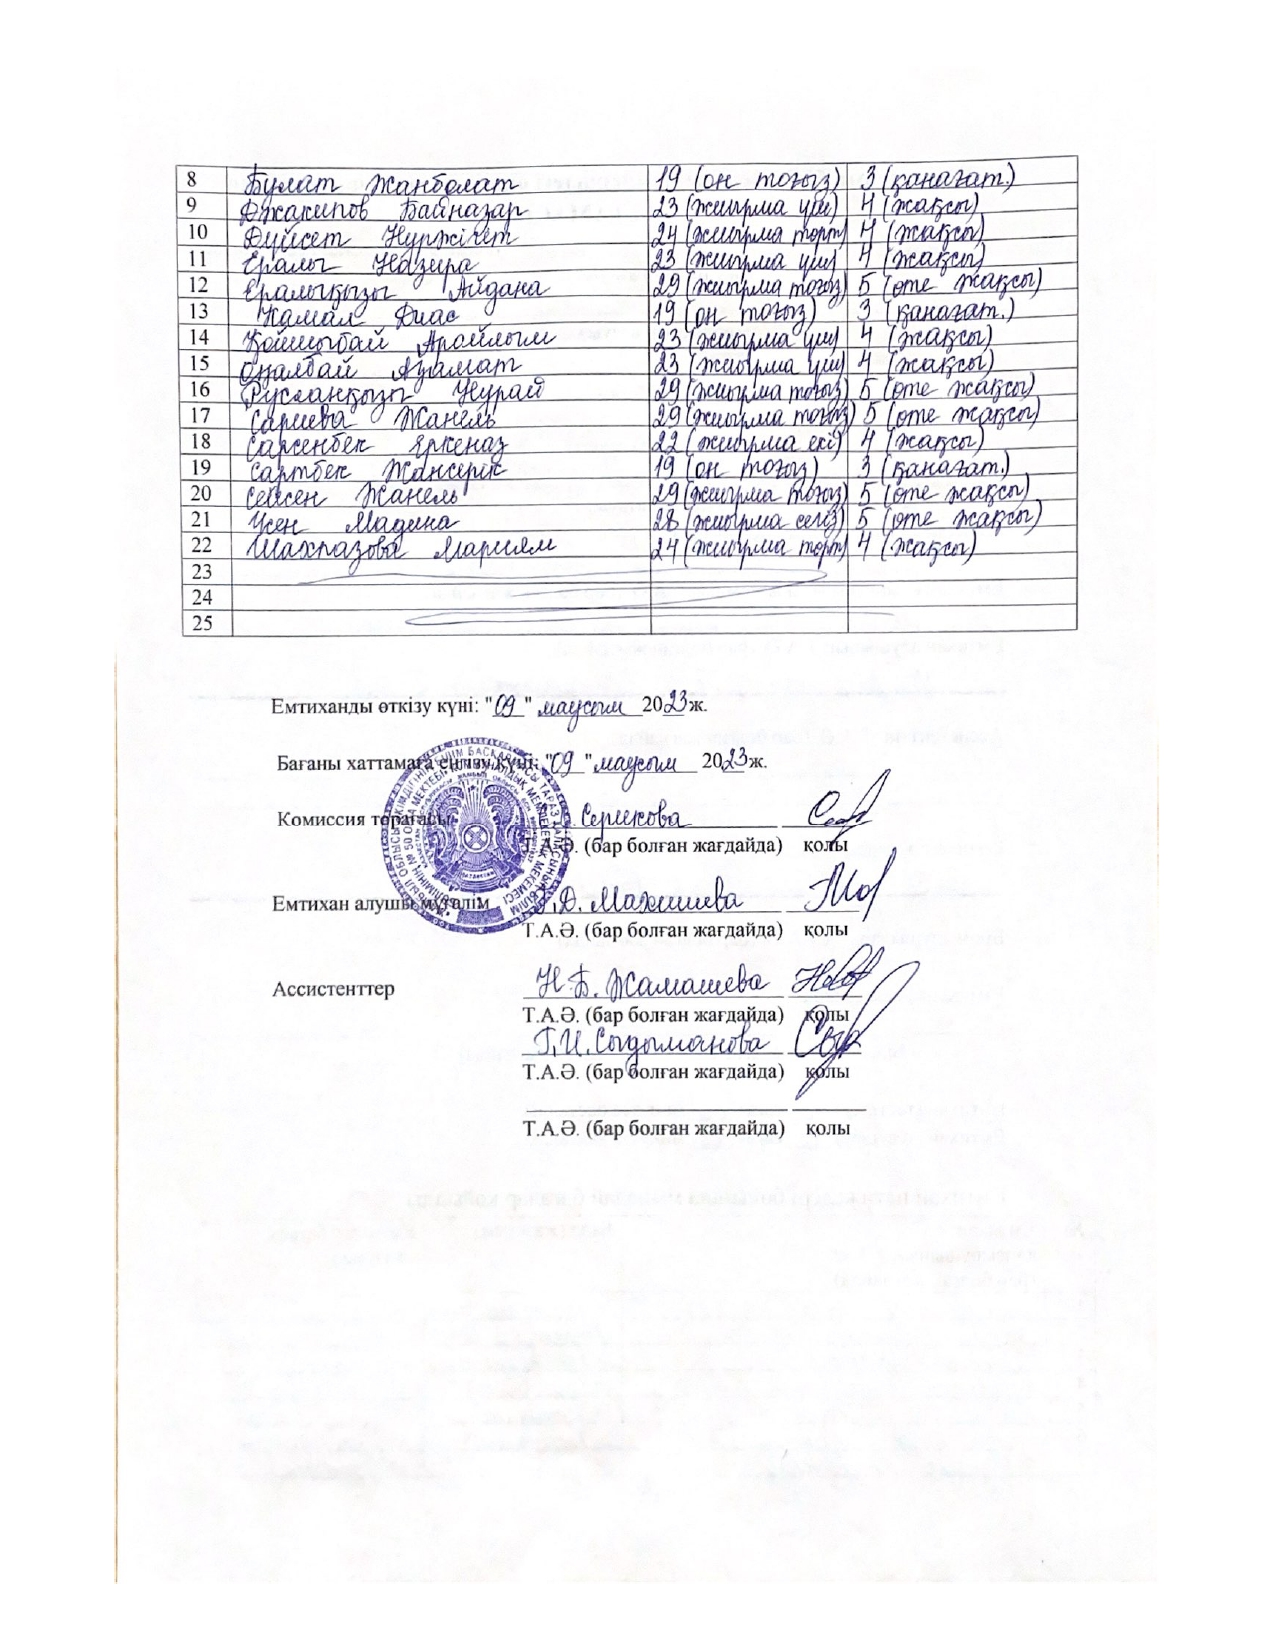 8 Булат Жанболат 19 (он тоғыз) 3 (қанағат.)
9 Джакипов Байназар 23 (жиырма үш) 4 (жақсы)
10 Дүйсет Нұржігіт 24 (жиырма төрт) 4 (жақсы)
11 Ералы Назира 23 (жиырма үш) 4 (жақсы)
12 Ералықызы Айдана 29 (жиырма тоғыз) 5 (өте жақсы)
13 Камал Диас 19 (он тоғыз) 3 (қанағат.)
14 Қошыбай Арайлым 23 (жиырма үш) 4 (жақсы)
15 Оңалбай Азамат 23 (жиырма үш) 4 (жақсы)
16 Русланқызы Нұрай 29 (жиырма тоғыз) 5 (өте жақсы)
17 Сариева Жанель 29 (жиырма тоғыз) 5 (өте жақсы)
18 Сарсенбек Еркеназ 22 (жиырма екі) 4 (жақсы)
19 Сартбек Жансерік 19 (он тоғыз) 3 (қанағат.)
20 Сейсен Жанель 29 (жиырма тоғыз) 5 (өте жақсы)
21 Үсен Мадина 28 (жиырма сегіз) 5 (өте жақсы)
22 Шахназова Мариям 24 (жиырма төрт) 4 (жақсы)
23
24
25
Емтиханды өткізу күні: "09" маусым 2023 ж.
Бағаны хаттамаға енгізу күні: "09" маусым 2023 ж.
Комиссия төрағасы Серикова
Т.А.Ә. (бар болған жағдайда) қолы
Емтихан алушы мұғалім Г.Д. Махишева
Т.А.Ә. (бар болған жағдайда) қолы
Ассистенттер Н.Б. Жамашева
Т.А.Ә. (бар болған жағдайда) қолы
Г.И. Сыдыманова
Т.А.Ә. (бар болған жағдайда) қолы
Т.А.Ә. (бар болған жағдайда) қолы